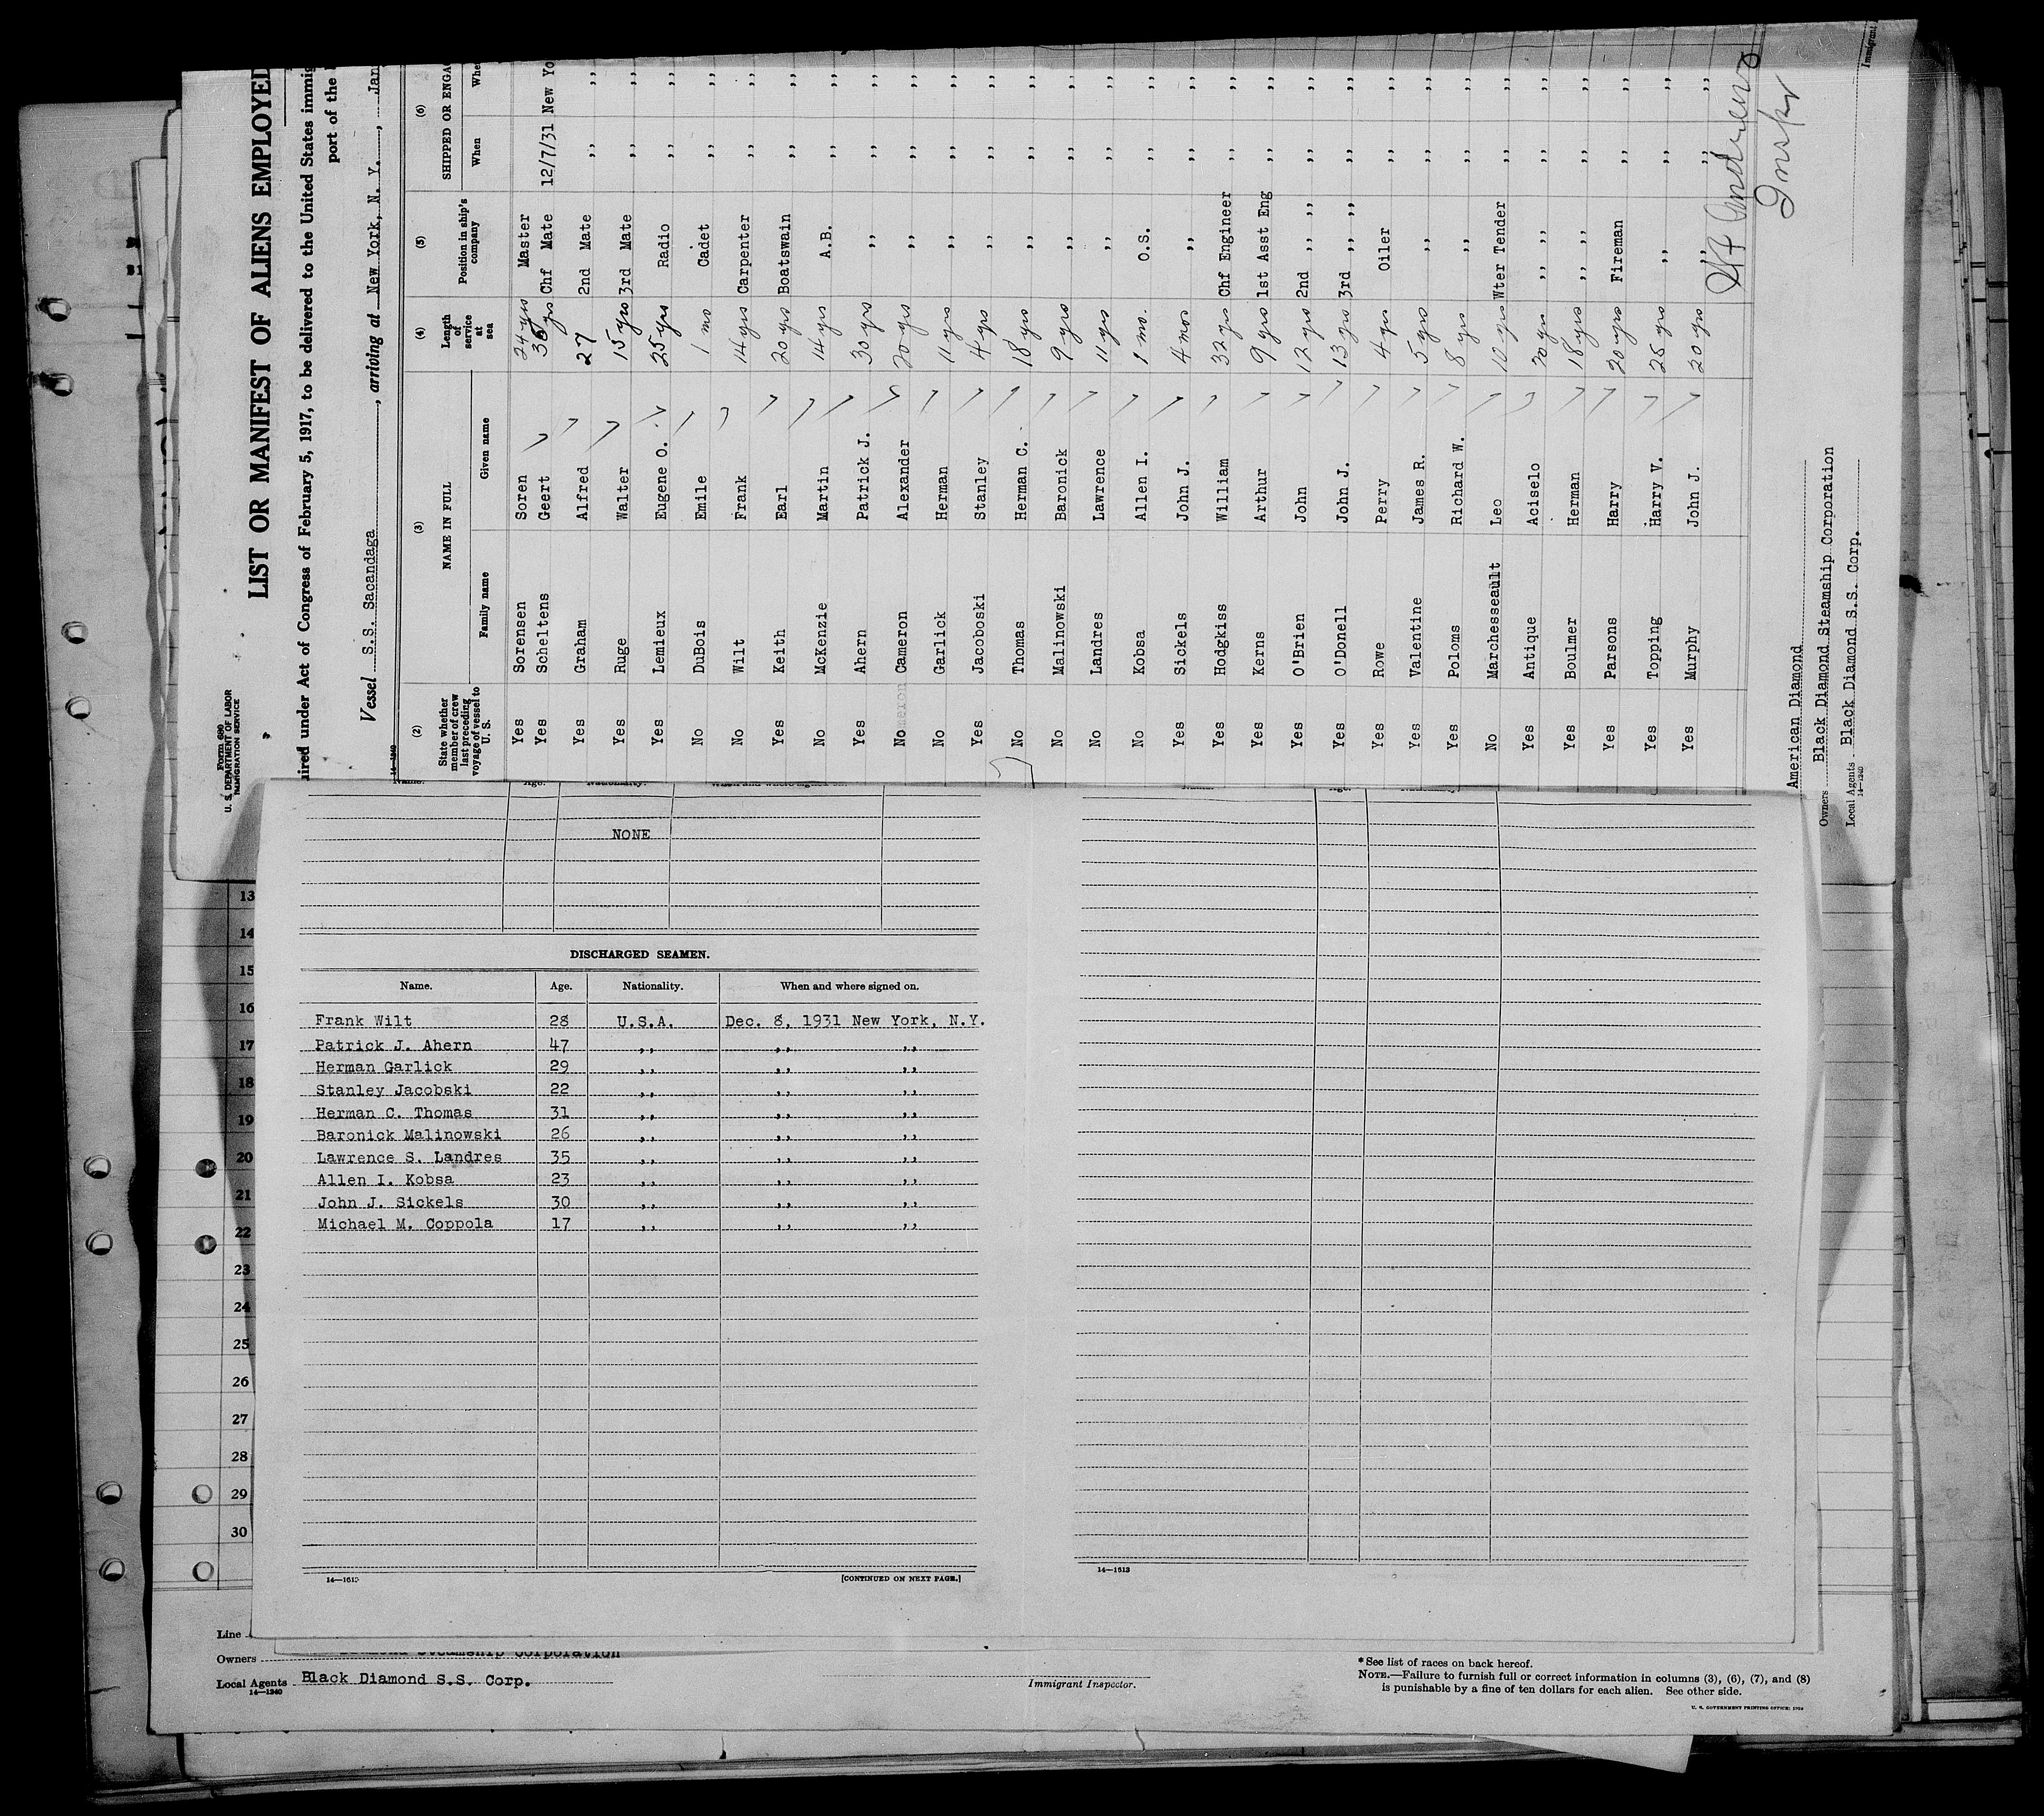 Form 680
U. S. DEPARTMENT OF LABOR
IMMIGRATION SERVICE
LIST OR MANIFEST OF ALIENS EMPLOYED
uired under Act of Congress of February 5, 1917, to be delivered to the United States immig
port of the
Vessel S.S. Sacandaga, arriving at New York, N. Y., Jan
14—1240
(2) (3) (4) (5) (6)
State whether member of crew last preceding voyage of vessel to U. S. NAME IN FULL Length of service at sea Position in ship's company SHIPPED OR ENGA
Family name Given name When Whe
Yes Sorensen Soren 24 yrs Master
Yes Scheltens Geert 36 yrs Chf Mate 12/7/31 New Yo
Yes Graham Alfred 27 2nd Mate ,, ,,
Yes Ruge Walter 15 yrs 3rd Mate ,, ,,
Yes Lemieux Eugene O. 25 yrs Radio ,, ,,
No DuBois Emile 1 mo Cadet ,, ,,
No Wilt Frank 14 yrs Carpenter ,, ,,
Yes Keith Earl 20 yrs Boatswain ,, ,,
No McKenzie Martin 14 yrs A.B. ,, ,,
Yes Ahern Patrick J. 30 yrs ,, ,, ,,
No Cameron Alexander 20 yrs ,, ,, ,,
No Garlick Herman 11 yrs ,, ,, ,,
Yes Jacoboski Stanley 4 yrs ,, ,, ,,
No Thomas Herman C. 18 yrs ,, ,, ,,
No Malinowski Baronick 9 yrs ,, ,, ,,
No Landres Lawrence 11 yrs ,, ,, ,,
No Kobsa Allen I. 1 mo. O.S. ,, ,,
Yes Sickels John J. 4 mos ,, ,, ,,
Yes Hodgkiss William 32 yrs Chf Engineer ,, ,,
Yes Kerns Arthur 9 yrs 1st Asst Eng ,, ,,
Yes O'Brien John 12 yrs 2nd ,, ,, ,, ,,
Yes O'Donell John J. 13 yrs 3rd ,, ,, ,, ,,
Yes Rowe Perry 4 yrs Oiler ,, ,,
Yes Valentine James R. 5 yrs ,, ,, ,,
Yes Poloms Richard W. 8 yrs ,, ,, ,,
No Marchesseault Leo 10 yrs Wter Tender ,, ,,
Yes Antique Aciselo 20 yrs ,, ,, ,, ,,
Yes Boulmer Herman 18 yrs ,, ,, ,, ,,
Yes Parsons Harry 20 yrs Fireman ,, ,,
Yes Topping Harry V. 25 yrs ,, ,, ,,
Yes Murphy John J. 20 yrs ,, ,, ,,
Andrews
Inspr
Immigrant
American Diamond
Owners Black Diamond Steamship Corporation
Local Agents Black Diamond S.S. Corp.
14—1240
NONE
DISCHARGED SEAMEN.
Name. Age. Nationality. When and where signed on.
Frank Wilt 28 U.S.A. Dec. 8, 1931 New York, N.Y.
Patrick J. Ahern 47 ,, ,, ,,
Herman Garlick 29 ,, ,, ,,
Stanley Jacobski 22 ,, ,, ,,
Herman C. Thomas 31 ,, ,, ,,
Baronick Malinowski 26 ,, ,, ,,
Lawrence S. Landres 35 ,, ,, ,,
Allen I. Kobsa 23 ,, ,, ,,
John J. Sickels 30 ,, ,, ,,
Michael M. Coppola 17 ,, ,, ,,
14—1613
[CONTINUED ON NEXT PAGE.]
14—1613
13
14
15
16
17
18
19
20
21
22
23
24
25
26
27
28
29
30
Line
Owners Steamship Corporation
Local Agents Black Diamond S.S. Corp.
14—1240
Immigrant Inspector.
* See list of races on back hereof.
NOTE.—Failure to furnish full or correct information in columns (3), (6), (7), and (8)
is punishable by a fine of ten dollars for each alien. See other side.
U. S. GOVERNMENT PRINTING OFFICE: